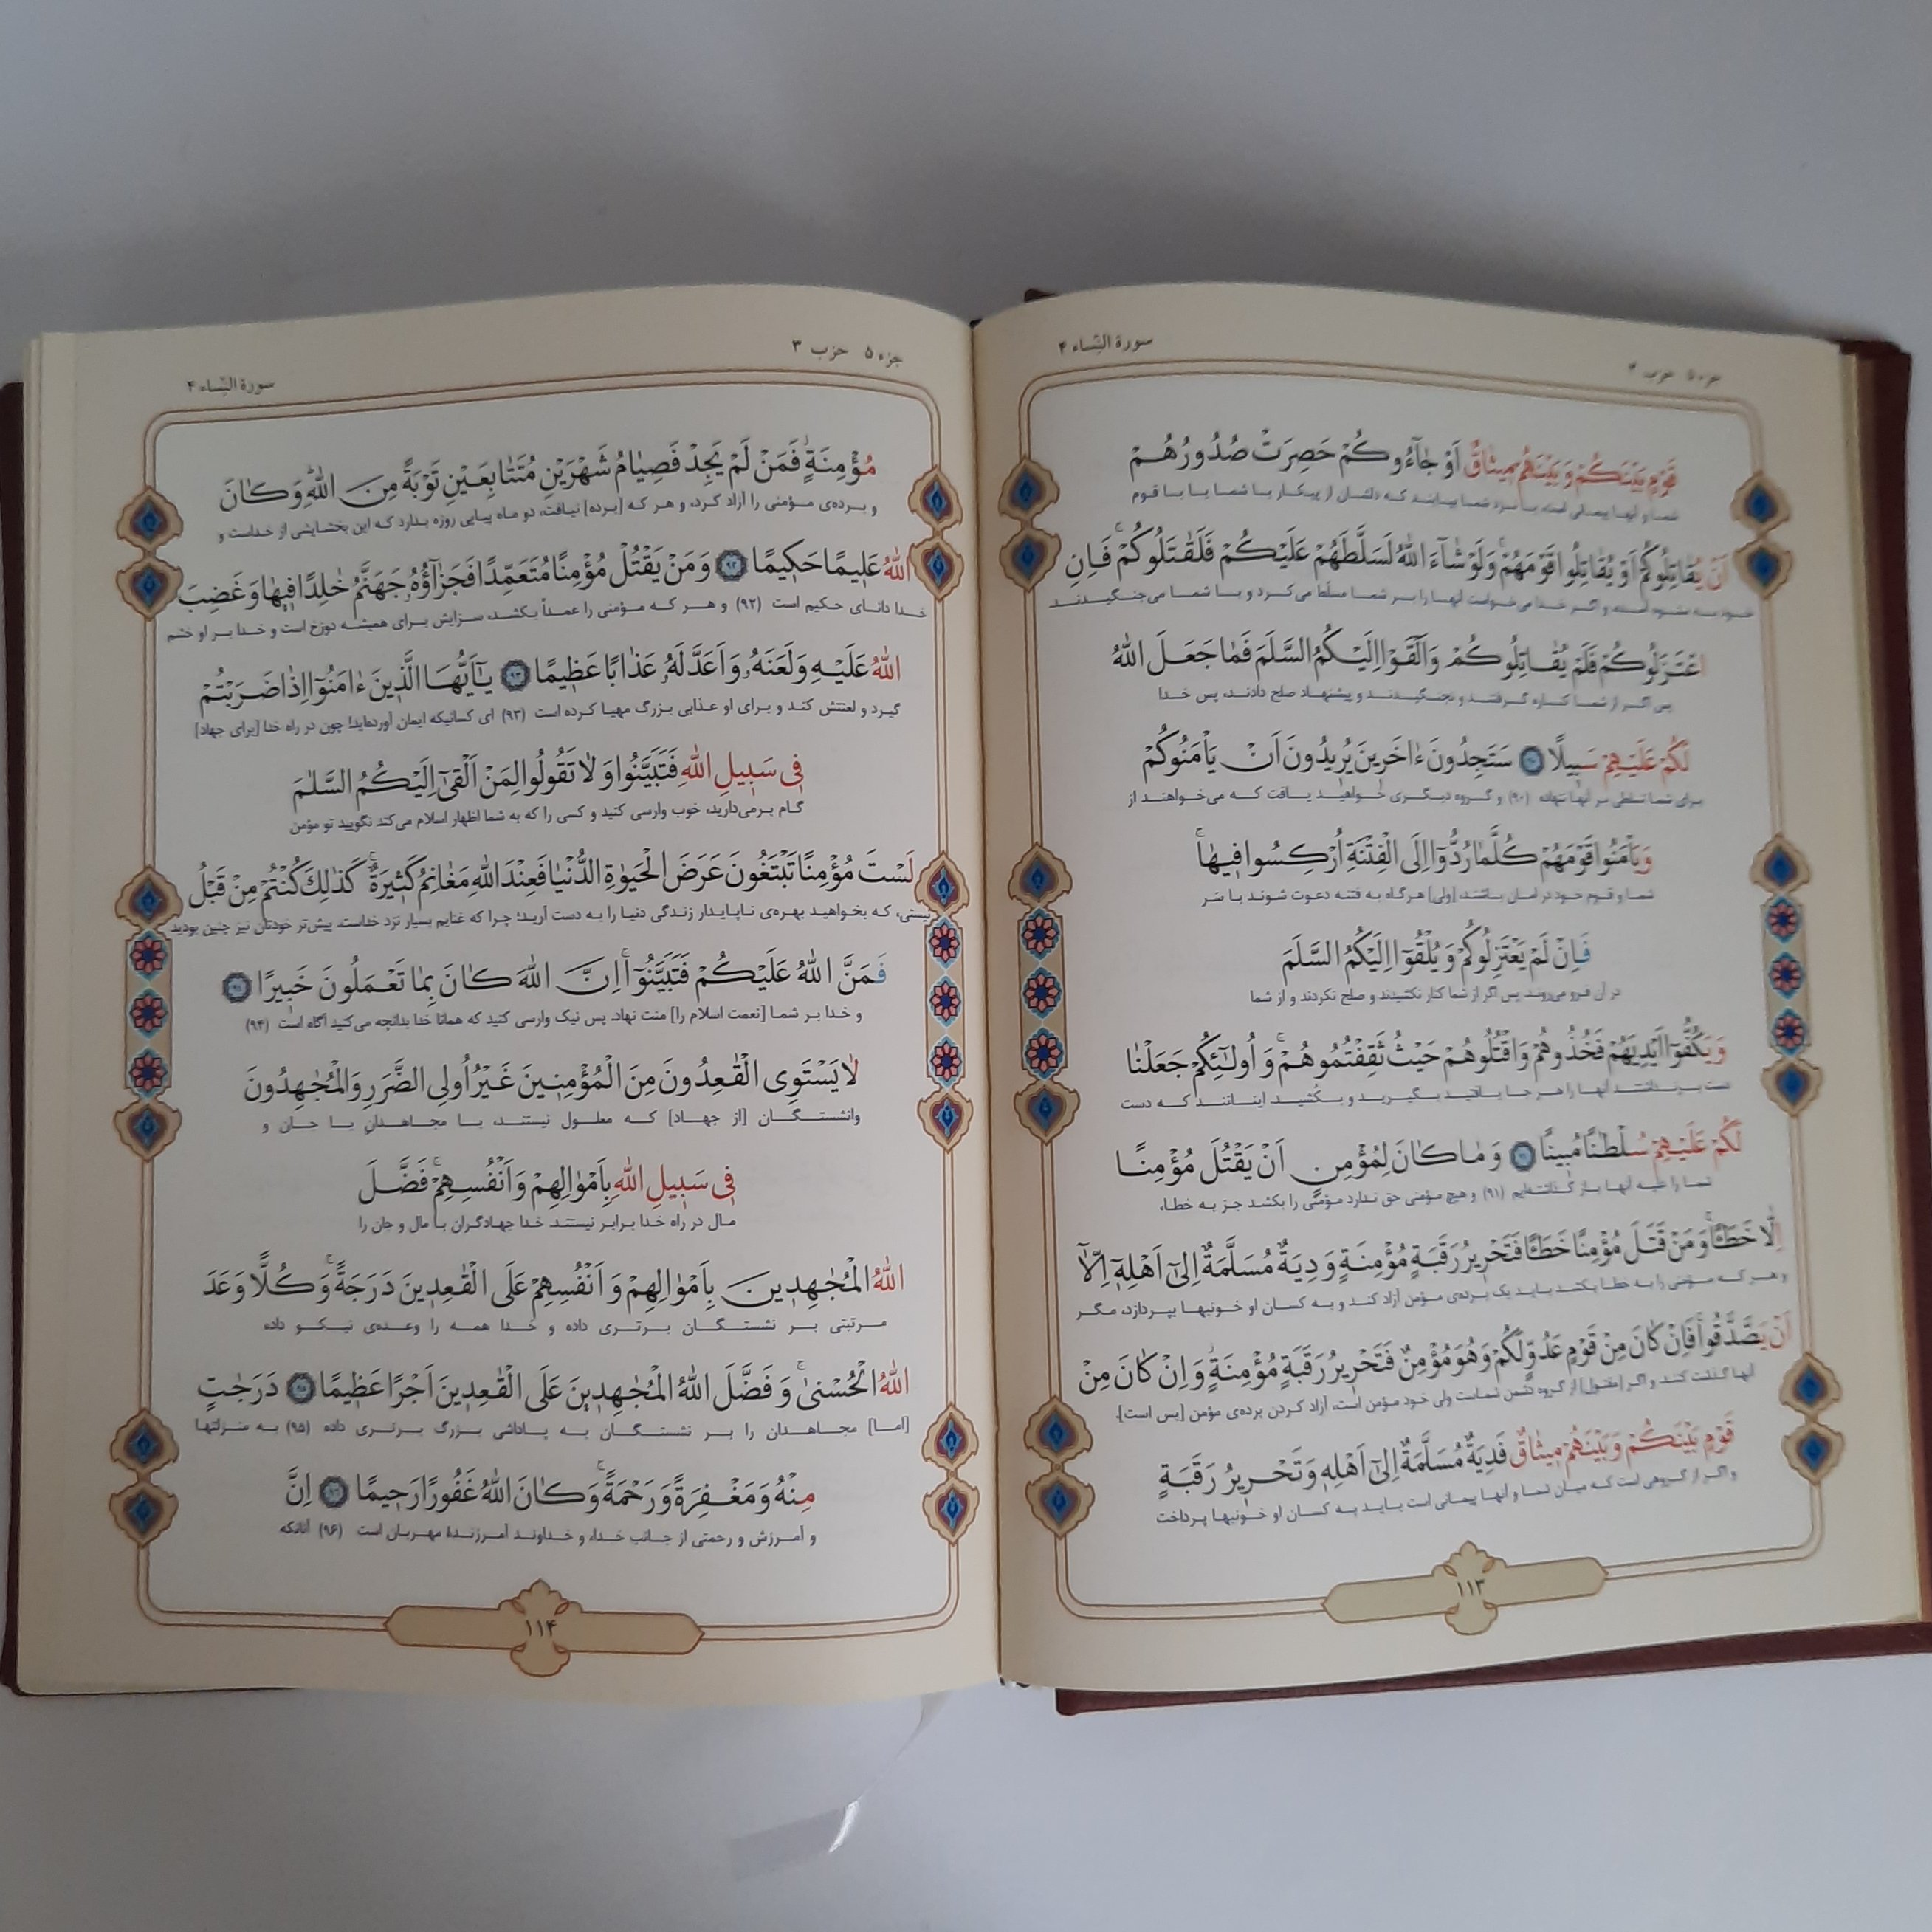 جزء ۵ حزب ۳
سورة النّساء ۴
قَوْمٍ بَيْنَكُمْ وَ بَيْنَهُمْ مِيثٰاقٌ اَوْ جٰٓاءُوكُمْ حَصِرَتْ صُدُورُهُمْ
شما و آنها پیمانی است، یا نزد شما بیایند که دلشان از پیکار با شما یا با قوم
اَنْ يُقٰاتِلُوكُمْ اَوْ يُقٰاتِلُوا قَوْمَهُمْ ۚ وَلَوْ شٰٓاءَ اللّٰهُ لَسَلَّطَهُمْ عَلَيْكُمْ فَلَقٰتَلُوكُمْ ۚ فَاِنِ
خود به ستوه آمده، و اگر خدا می‌خواست آنها را بر شما مسلّط می‌کرد و با شما می‌جنگیدند
اعْتَزَلُوكُمْ فَلَمْ يُقٰاتِلُوكُمْ وَ اَلْقَوْا اِلَيْكُمُ السَّلَمَ فَمٰا جَعَلَ اللّٰهُ
پس اگر از شما کناره گرفتند و نجنگیدند و پیشنهاد صلح دادند، پس خدا
لَكُمْ عَلَيْهِمْ سَبِيلًا ۹۰ سَتَجِدُونَ ءٰاخَرِينَ يُرِيدُونَ اَنْ يَأْمَنُوكُمْ
برای شما تسلطی بر آنها ننهاده (۹۰) و گروه دیگری خواهید یافت که می‌خواهند از
وَ يَأْمَنُوا قَوْمَهُمْ كُلَّمٰا رُدُّوٓا اِلَى الْفِتْنَةِ اُرْكِسُوا فِيهٰا ۚ
شما و قوم خود در امان باشند، [ولی] هرگاه به فتنه دعوت شوند با سَر
فَاِنْ لَمْ يَعْتَزِلُوكُمْ وَ يُلْقُوٓا اِلَيْكُمُ السَّلَمَ
در آن فرو می‌روند پس اگر از شما کنار نکشیدند و صلح نکردند و از شما
وَ يَكُفُّوٓا اَيْدِيَهُمْ فَخُذُوهُمْ وَ اقْتُلُوهُمْ حَيْثُ ثَقِفْتُمُوهُمْ ۚ وَ اُولٰٓئِكُمْ جَعَلْنٰا
دست برنداشتند آنها را هر جا یافتید بگیرید و بکُشید اینانند که دست
لَكُمْ عَلَيْهِمْ سُلْطٰنًا مُبِينًا ۹۱ وَ مٰا كٰانَ لِمُؤْمِنٍ اَنْ يَقْتُلَ مُؤْمِنًا
شما را علیه آنها باز گذاشته‌ایم (۹۱) و هیچ مؤمنی حق ندارد مؤمنی را بکشد جز به خطا،
اِلّٰا خَطَـًٔا ۚ وَ مَنْ قَتَلَ مُؤْمِنًا خَطَـًٔا فَتَحْرِيرُ رَقَبَةٍ مُؤْمِنَةٍ وَ دِيَةٌ مُسَلَّمَةٌ اِلىٰٓ اَهْلِهِٓ اِلّٰٓا
و هر که مؤمنی را به خطا بکشد باید یک برده‌ی مؤمن آزاد کند و به کسان او خونبها بپردازد، مگر
اَنْ يَصَّدَّقُوا ۚ فَاِنْ كٰانَ مِنْ قَوْمٍ عَدُوٍّ لَكُمْ وَ هُوَ مُؤْمِنٌ فَتَحْرِيرُ رَقَبَةٍ مُؤْمِنَةٍ ۖ وَ اِنْ كٰانَ مِنْ
آنها گذشت کنند و اگر [مقتول] از گروه دشمن شماست ولی خود مؤمن است، آزاد کردن برده‌ی مؤمن [بس است].
قَوْمٍ بَيْنَكُمْ وَ بَيْنَهُمْ مِيثٰاقٌ فَدِيَةٌ مُسَلَّمَةٌ اِلىٰٓ اَهْلِهِ وَ تَحْرِيرُ رَقَبَةٍ
و اگر از گروهی است که میان شما و آنها پیمانی است باید به کسان او خونبها پرداخت
۱۱۳
جزء ۵ حزب ۳
سورة النّساء ۴
مُؤْمِنَةٍ ۖ فَمَنْ لَمْ يَجِدْ فَصِيٰامُ شَهْرَيْنِ مُتَتٰابِعَيْنِ تَوْبَةً مِنَ اللّٰهِ ۗ وَ كٰانَ
و برده‌ی مؤمنی را آزاد کرد، و هر که [برده] نیافت، دو ماه پیاپی روزه بدارد که این بخشایشی از خداست و
اللّٰهُ عَلِيمًا حَكِيمًا ۹۲ وَ مَنْ يَقْتُلْ مُؤْمِنًا مُتَعَمِّدًا فَجَزٰٓاؤُهُ جَهَنَّمُ خٰلِدًا فِيهٰا وَ غَضِبَ
خدا دانای حکیم است (۹۲) و هر که مؤمنی را عمداً بکشد، سزایش برای همیشه دوزخ است و خدا بر او خشم
اللّٰهُ عَلَيْهِ وَ لَعَنَهُ وَ اَعَدَّ لَهُ عَذٰابًا عَظِيمًا ۹۳ يٰٓاَيُّهَا الَّذِينَ ءٰامَنُوٓا اِذٰا ضَرَبْتُمْ
گیرد و لعنتش کند و برای او عذابی بزرگ مهیا کرده است (۹۳) ای کسانیکه ایمان آورده‌اید! چون در راه خدا [برای جهاد]
فِى سَبِيلِ اللّٰهِ فَتَبَيَّنُوا وَ لٰا تَقُولُوا لِمَنْ اَلْقىٰٓ اِلَيْكُمُ السَّلٰمَ
گام برمی‌دارید، خوب وارسی کنید و کسی را که به شما اظهار اسلام می‌کند نگویید تو مؤمن
لَسْتَ مُؤْمِنًا تَبْتَغُونَ عَرَضَ الْحَيٰوةِ الدُّنْيٰا فَعِنْدَ اللّٰهِ مَغٰانِمُ كَثِيرَةٌ ۚ كَذٰلِكَ كُنْتُمْ مِنْ قَبْلُ
نیستی، که بخواهید بهره‌ی ناپایدار زندگی دنیا را به دست آرید؛ چرا که غنایم بسیار نزد خداست. پیش‌تر خودتان نیز چنین بودید
فَمَنَّ اللّٰهُ عَلَيْكُمْ فَتَبَيَّنُوٓا ۚ اِنَّ اللّٰهَ كٰانَ بِمٰا تَعْمَلُونَ خَبِيرًا ۹۴
و خدا بر شما [نعمت اسلام را] منت نهاد. پس نیک وارسی کنید که همانا خدا بدانچه می‌کنید آگاه است (۹۴)
لٰا يَسْتَوِى الْقٰعِدُونَ مِنَ الْمُؤْمِنِينَ غَيْرُ اُولِى الضَّرَرِ وَ الْمُجٰهِدُونَ
وانشستگان [از جهاد] که معلول نیستند، با مجاهدانِ با جان و
فِى سَبِيلِ اللّٰهِ بِاَمْوٰالِهِمْ وَ اَنْفُسِهِمْ ۚ فَضَّلَ
مال در راه خدا برابر نیستند خدا جهادگران با مال و جان را
اللّٰهُ الْمُجٰهِدِينَ بِاَمْوٰالِهِمْ وَ اَنْفُسِهِمْ عَلَى الْقٰعِدِينَ دَرَجَةً ۚ وَ كُلًّا وَعَدَ
مرتبتی بر نشستگان برتری داده و خدا همه را وعده‌ی نیکو داده
اللّٰهُ الْحُسْنىٰ ۚ وَ فَضَّلَ اللّٰهُ الْمُجٰهِدِينَ عَلَى الْقٰعِدِينَ اَجْرًا عَظِيمًا ۹۵ دَرَجٰتٍ
[اما] مجاهدان را بر نشستگان به پاداشی بزرگ برتری داده (۹۵) به منزلتها
مِنْهُ وَ مَغْفِرَةً وَ رَحْمَةً ۚ وَ كٰانَ اللّٰهُ غَفُورًا رَحِيمًا ۹۶ اِنَّ
و آمرزش و رحمتی از جانب خدا، و خداوند آمرزندۀ مهربان است (۹۶) آنانکه
۱۱۴